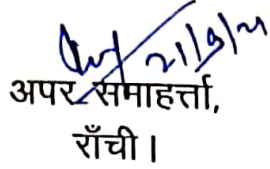 21/9/21
अपर समाहर्त्ता,
राँची।